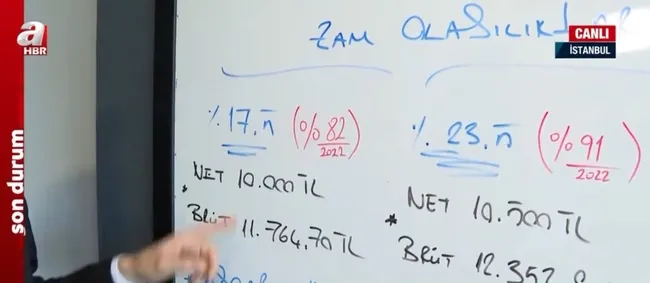 a
HBR
CANLI
İSTANBUL
son durum
ZAM OLASILIKLAR
% 17.n (%82 2022)
NET 10.000 TL
* BRÜT 11.764,70 TL
% 23.n (%91 2022)
NET 10.500 TL
* BRÜT 12.352